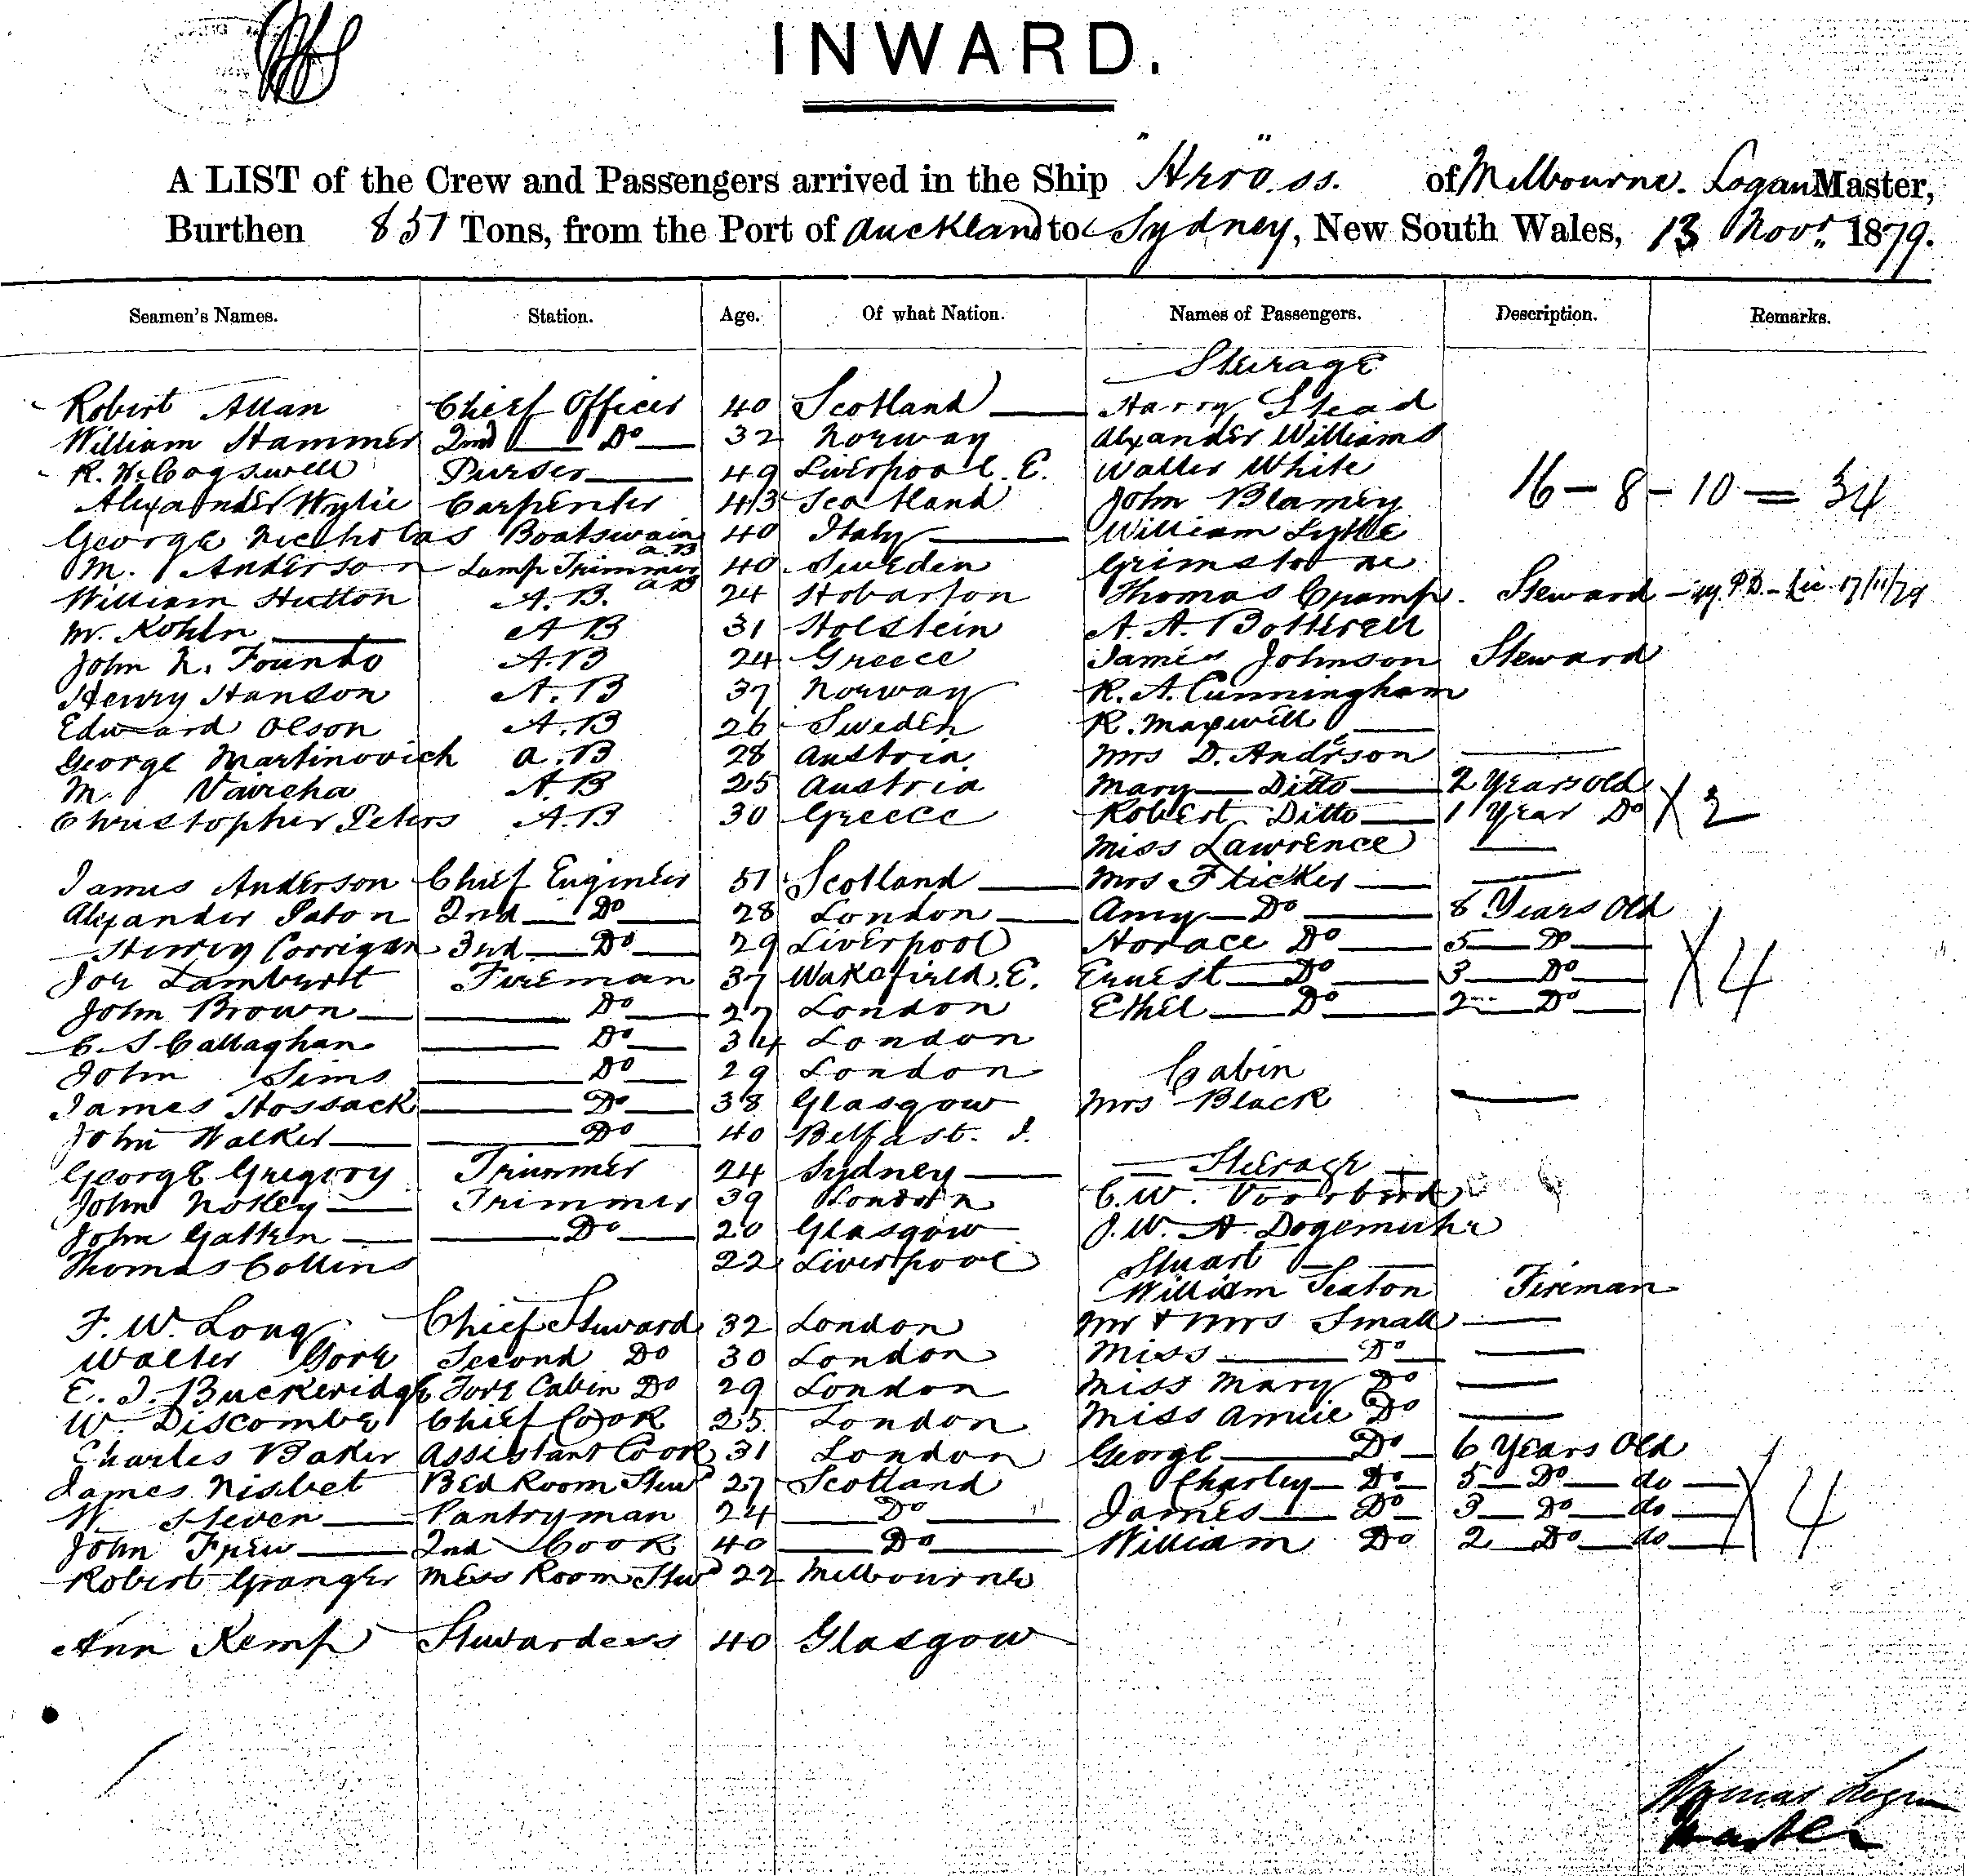 INWARD.
A LIST of the Crew and Passengers arrived in the Ship "Hero" ss. of Melbourne. Logan Master,
Burthen Tons, from the Port of Auckland to Sydney, New South Wales, 13 Novr. 1879.
Seamen's Names. Station. Age. Of what Nation. Names of Passengers. Description. Remarks.
Steerage
Robert Allan Chief Officer 40 Scotland Harry Stead
William Hammer 2nd Do 32 Norway Alexander Williams
R. H. Cogswell Purser 49 Liverpool. E. Walter White
16 - 8 - 10 = 34
Alexander Wylie Carpenter 43 Scotland John Blamey
George Nicholas Boatswain 40 Italy William Lyttle
M. Anderson Lamp Trimmer A B 40 Sweden Grimstone
William Hutton A. B. 24 Hobarton Thomas Cramp. Steward
M. Kohln A B 31 Holstein A. A. Botterell
John N. Founto A. B 24 Greece James Johnson Steward
Henry Hanson A. B 37 Norway R. A. Cunningham
Edward Olson A. B 26 Sweden R. Maxwell
George Martinovich A. B 28 Austria Mrs D. Anderson
M. Vaircha A. B 25 Austria Mary Ditto 2 Years Old
Christopher Peters A. B 30 Greece Robert Ditto 1 Year Do X 2
Miss Lawrence
James Anderson Chief Engineer 51 Scotland Mrs Flicker
Alexander Paton 2nd Do 28 London Amy Do 8 Years Old
Henry Corrigan 3rd Do 29 Liverpool Horace Do 5 Do
Joe Lambert Fireman 37 Wakefield. E. Ernest Do 3 Do X 4
John Brown Do 27 London Ethel Do 2 Do
C. S Callaghan Do 34 London
John Sims Do 29 London Cabin
James Hossack Do 38 Glasgow Mrs Black
John Walker Do 40 Belfast. I.
George Gregory Trimmer 24 Sydney Steerage
John Nokley Trimmer 39 London C. W.
John Gatten Do 20 Glasgow J. W. A.
Thomas Collins 22 Liverpool Stuart
William Seaton Fireman
F. W. Long Chief Steward 32 London Mr & Mrs Small
Walter Gore Second Do 30 London Miss Do
E. J. Buckeridge Fore Cabin Do 29 London Miss Mary Do
W. Discombe Chief Cook 25 London Miss Annie Do
Charles Baker Assistant Cook 31 London George Do 6 Years Old
James Nisbet Bed Room Stewd 27 Scotland Charley Do 5 Do do
W. Steven Pantryman 24 Do James Do 3 Do do X 4
John Frew 2nd Cook 40 Do William Do 2 Do do
Robert Granger Mess Room Stewd 22 Melbourne
Ann Kemp Stewardess 40 Glasgow
Thomas Logan
Master